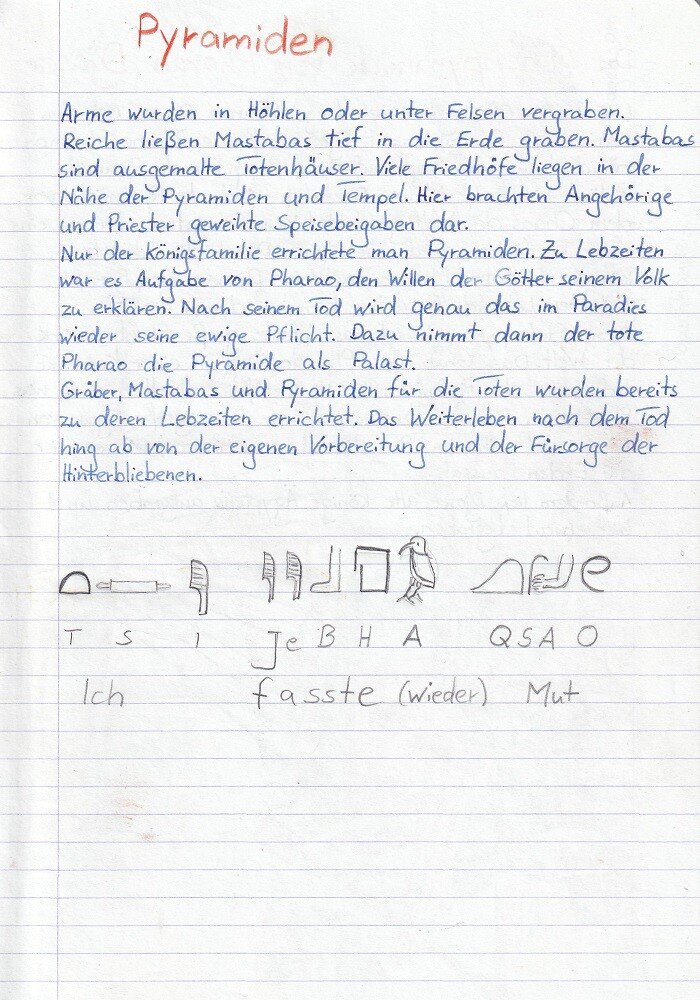 Pyramiden
Arme wurden in Höhlen oder unter Felsen vergraben.
Reiche ließen Mastabas tief in die Erde graben. Mastabas
sind ausgemalte Totenhäuser. Viele Friedhöfe liegen in der
Nähe der Pyramiden und Tempel. Hier brachten Angehörige
und Priester geweihte Speisebeigaben dar.
Nur der Königsfamilie errichtete man Pyramiden. Zu Lebzeiten
war es Aufgabe von Pharao, den Willen der Götter seinem Volk
zu erklären. Nach seinem Tod wird genau das im Paradies
wieder seine ewige Pflicht. Dazu nimmt dann der tote
Pharao die Pyramide als Palast.
Gräber, Mastabas und Pyramiden für die Toten wurden bereits
zu deren Lebzeiten errichtet. Das Weiterleben nach dem Tod
hing ab von der eigenen Vorbereitung und der Fürsorge der
Hinterbliebenen.
T S I Je B H A Q S A O
Ich fasste (wieder) Mut